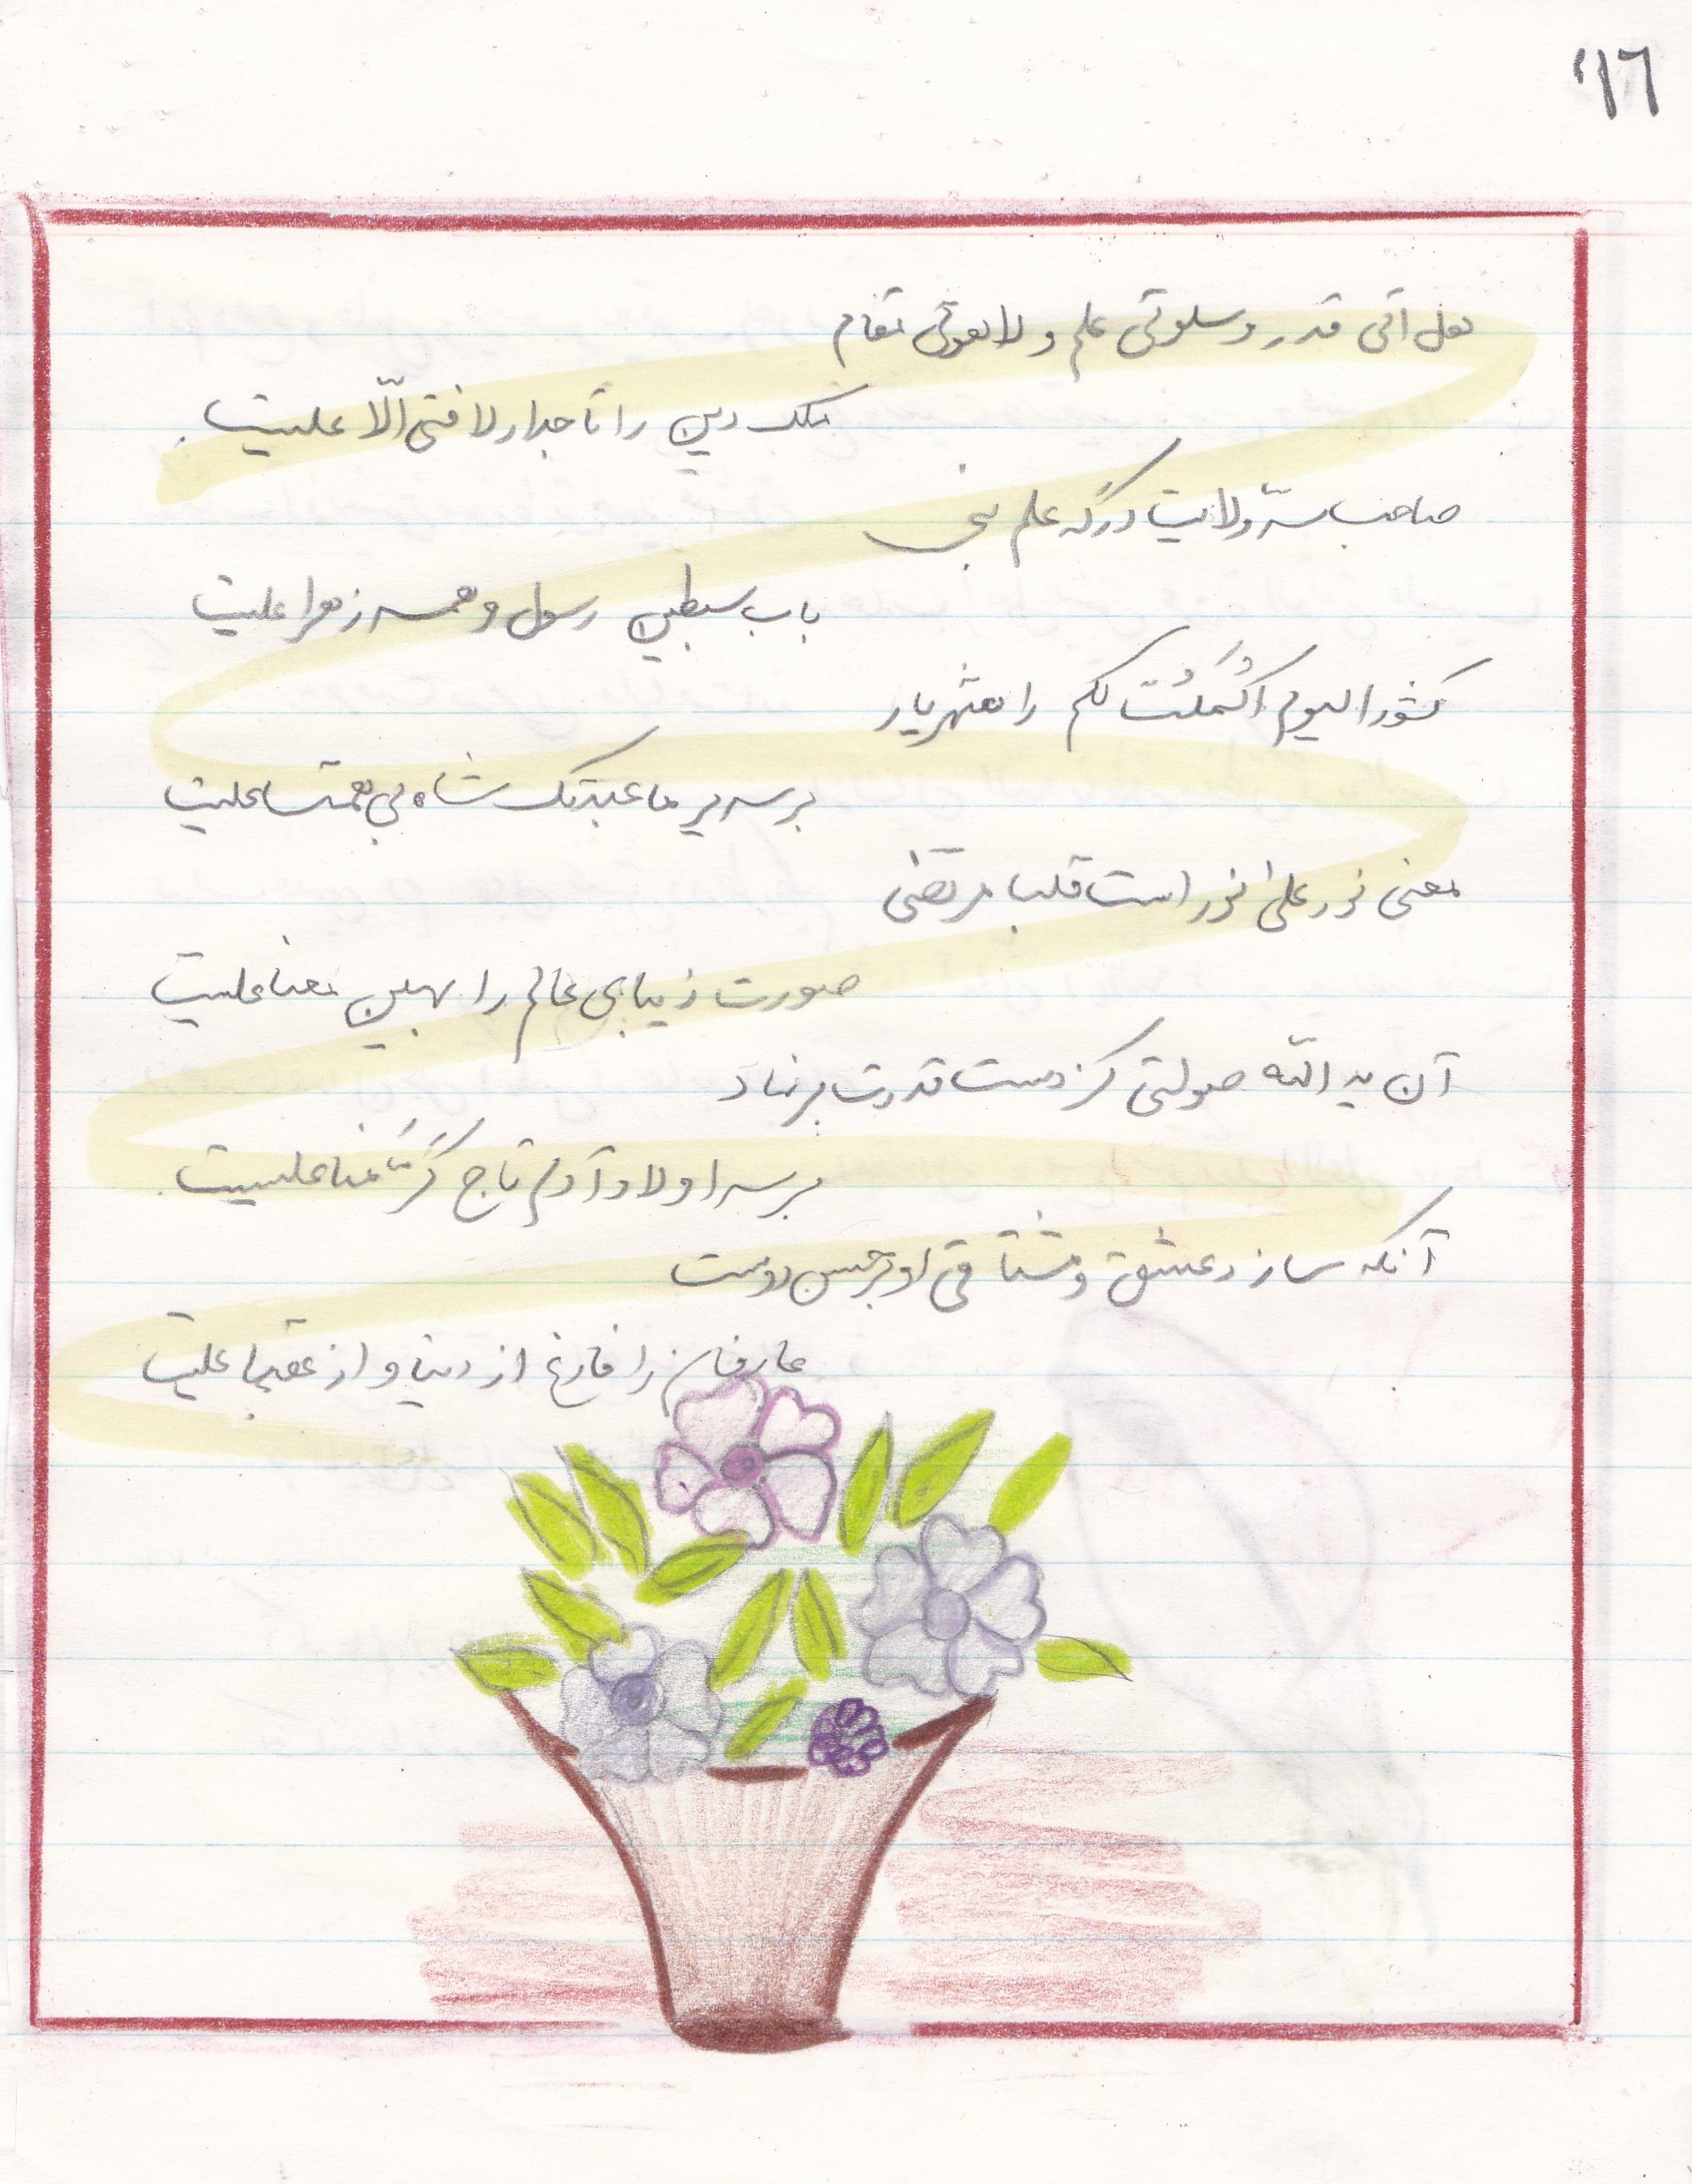 ۱۶'
هل اتی قدر و سلونی علم و لا تعوتی مقام
ملک دین را تاجدار لا فتی الّا علیست
صاحب سرّ ولایت درگه علم نبی
باب سبطین رسول و همسر زهرا علیست
کشور الیوم اَکْمَلْتُ لکم را شهریار
بر سریر ما عبدتک شاه بی همتا علیست
معنی نور علی نور است قلب مرتضی
صورت زیبای عالم را بهین معنا علیست
آن ید الله صولتی کز دست قدرت بر نهاد
بر سر اولاد آدم تاج کَرَّمْنا علیست
آنکه سازد عشق و مشتاقی او بر حسن دوست
عارفان را فارغ از دنیا و از عقبا علیست